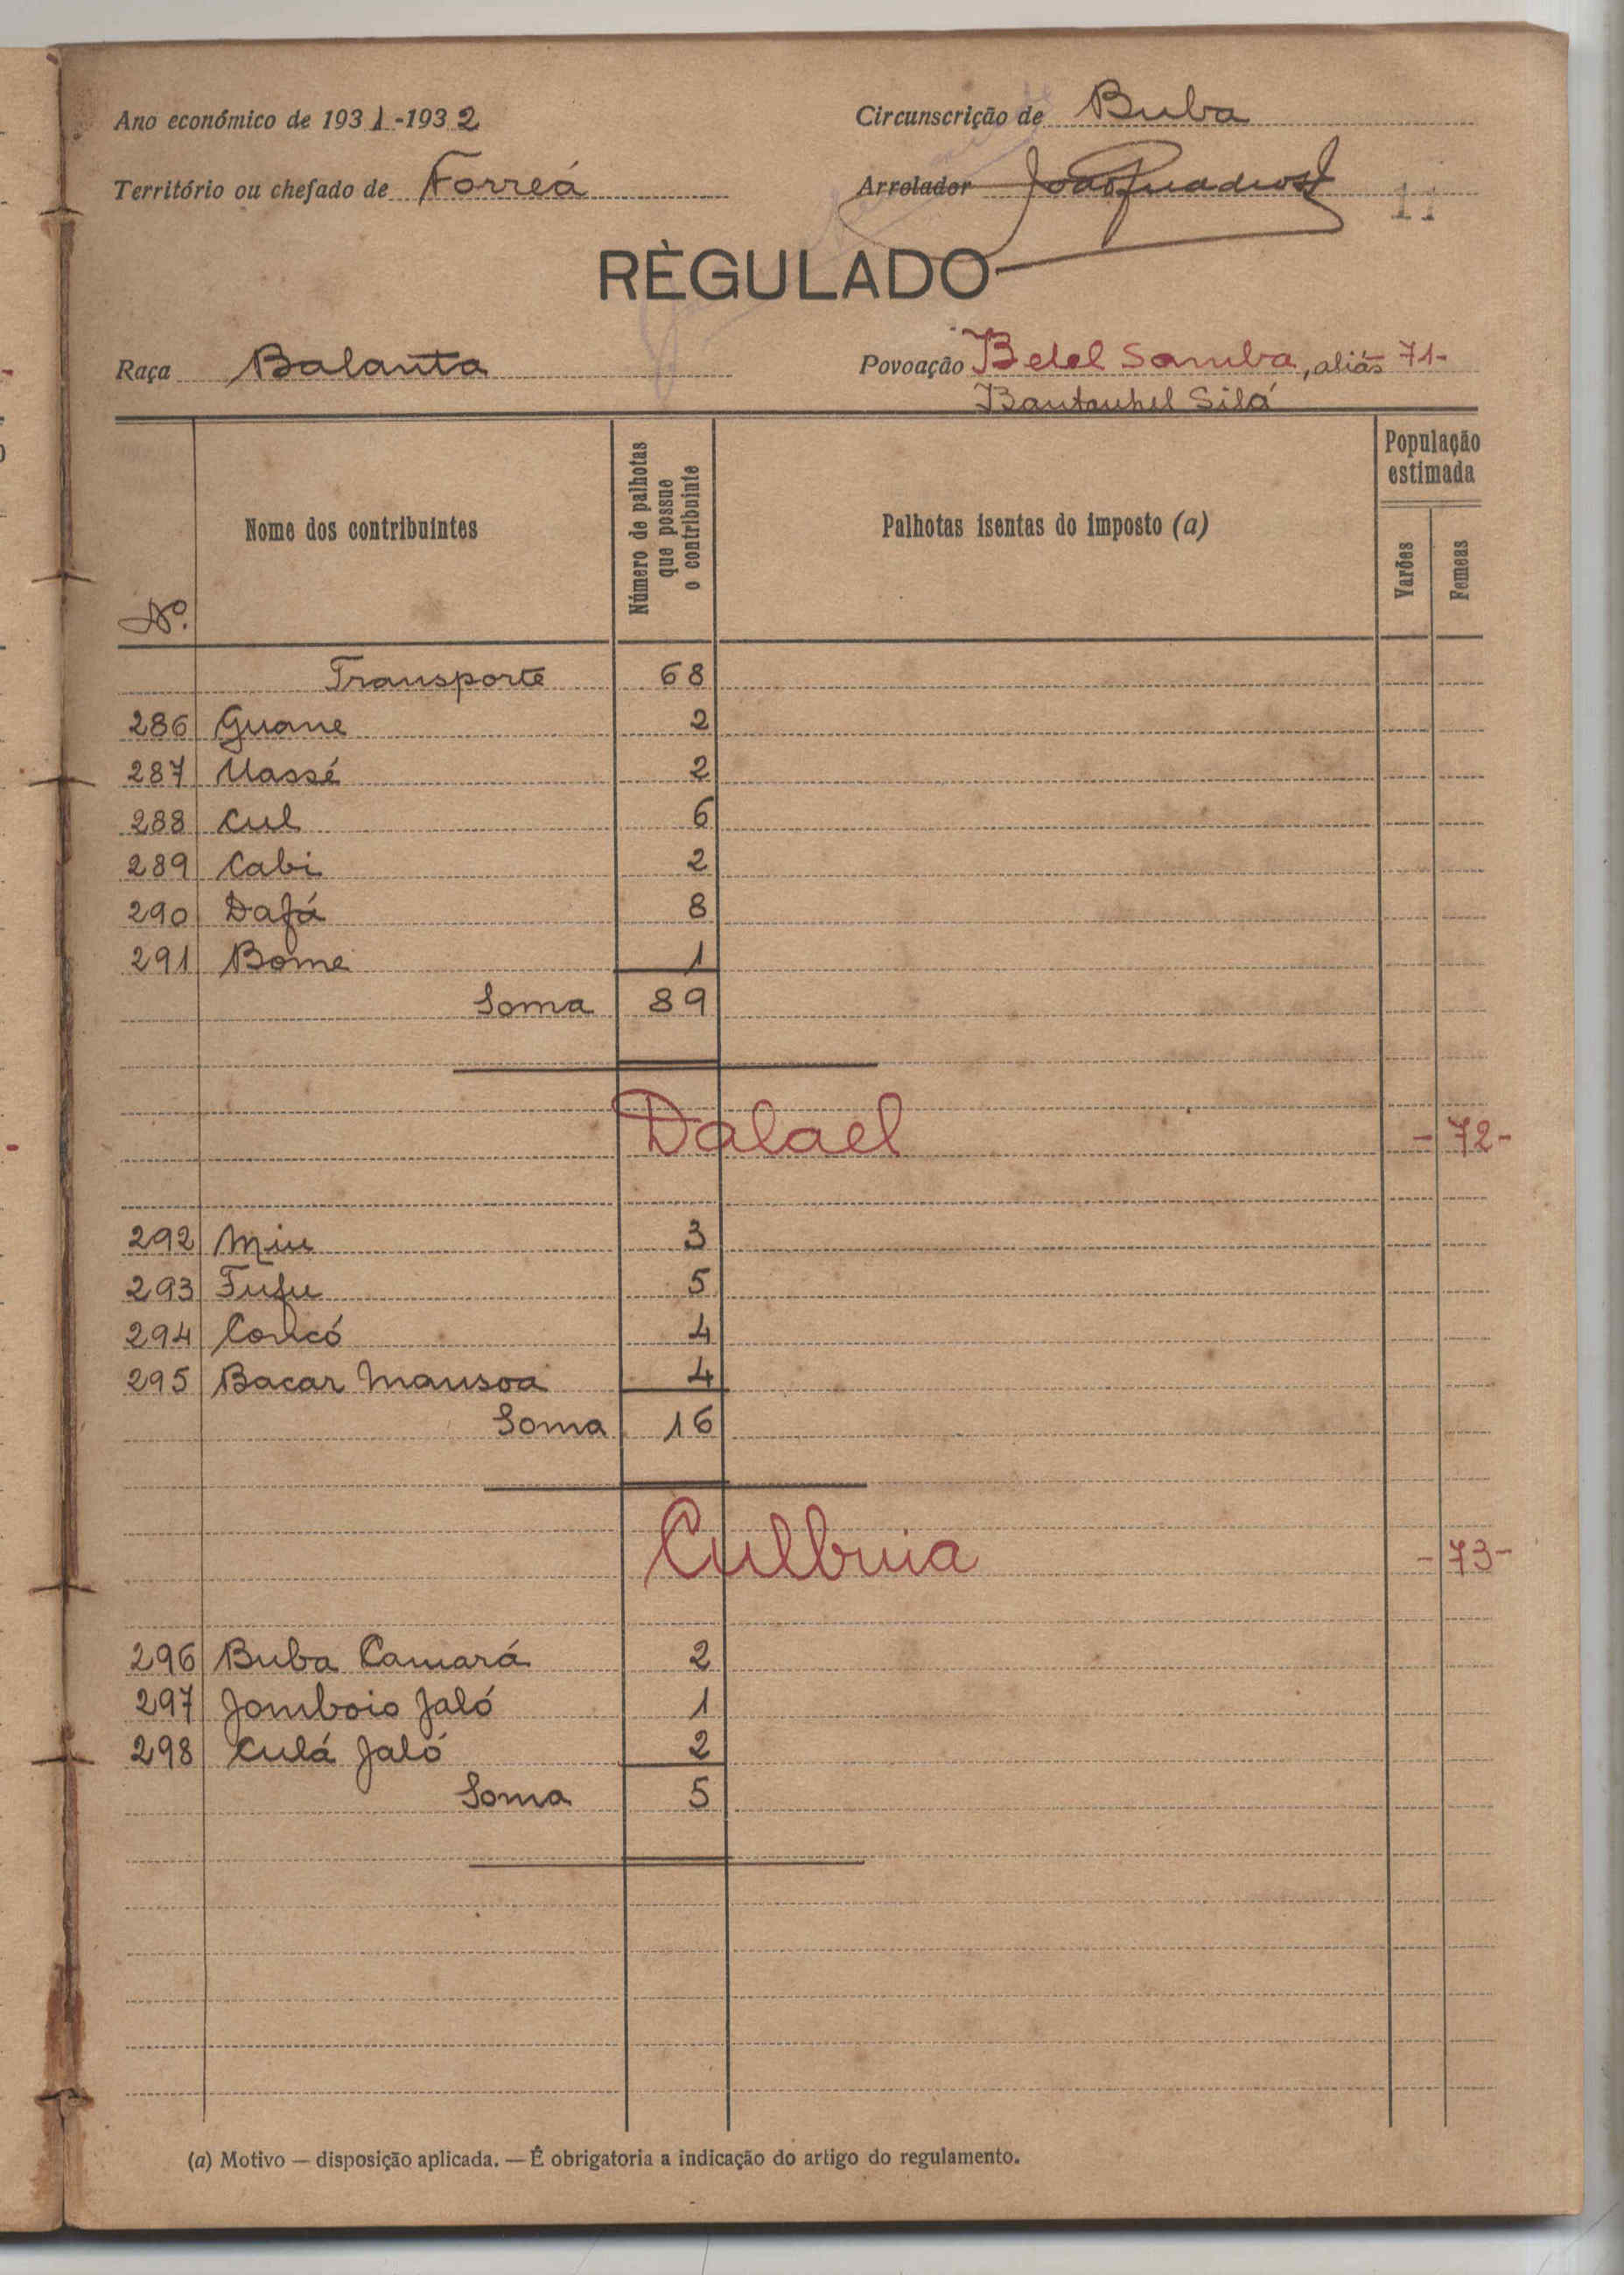 Ano económico de 1931-1932
Circunscrição de Buba
Território ou chefado de Forreá
Arrolador
11
RÈGULADO
Raça Balanta
Povoação Belel Samba, aliás 71-
Bantanhel Silá
Nº.
Nome dos contribuintes
Número de palhotas que possue o contribuinte
Palhotas isentas do imposto (a)
População estimada
Varões
Femeas
Transporte 68
286 Guane 2
287 Uassé 2
288 Cul 6
289 Cabi 2
290 Dafá 8
291 Bome 1
Soma 89
Dalael - 72 -
292 Miu 3
293 Fufu 5
294 Concó 4
295 Bacar Mansoa 4
Soma 16
Culbuia - 73 -
296 Buba Camará 2
297 Jomboio Jaló 1
298 Culá Jaló 2
Soma 5
(a) Motivo — disposição aplicada. — É obrigatoria a indicação do artigo do regulamento.